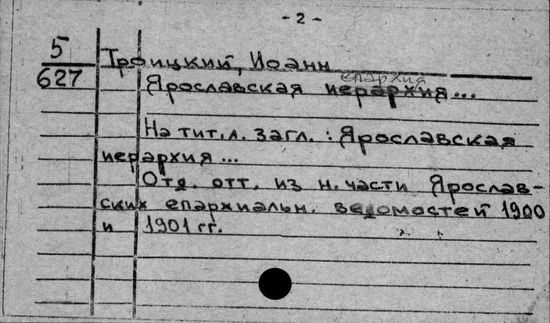 - 2 -
5
627
Троицкий, Иоанн
епархия
Ярославская иерархия...
На тит. л. загл. : Ярославская
иерархия...
Отд. отт. из н. части Ярослав-
ских епархиальн. ведомостей 1900
и 1901 гг.